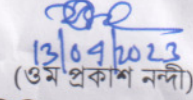 13/04/2023
(ওম প্রকাশ নন্দী)